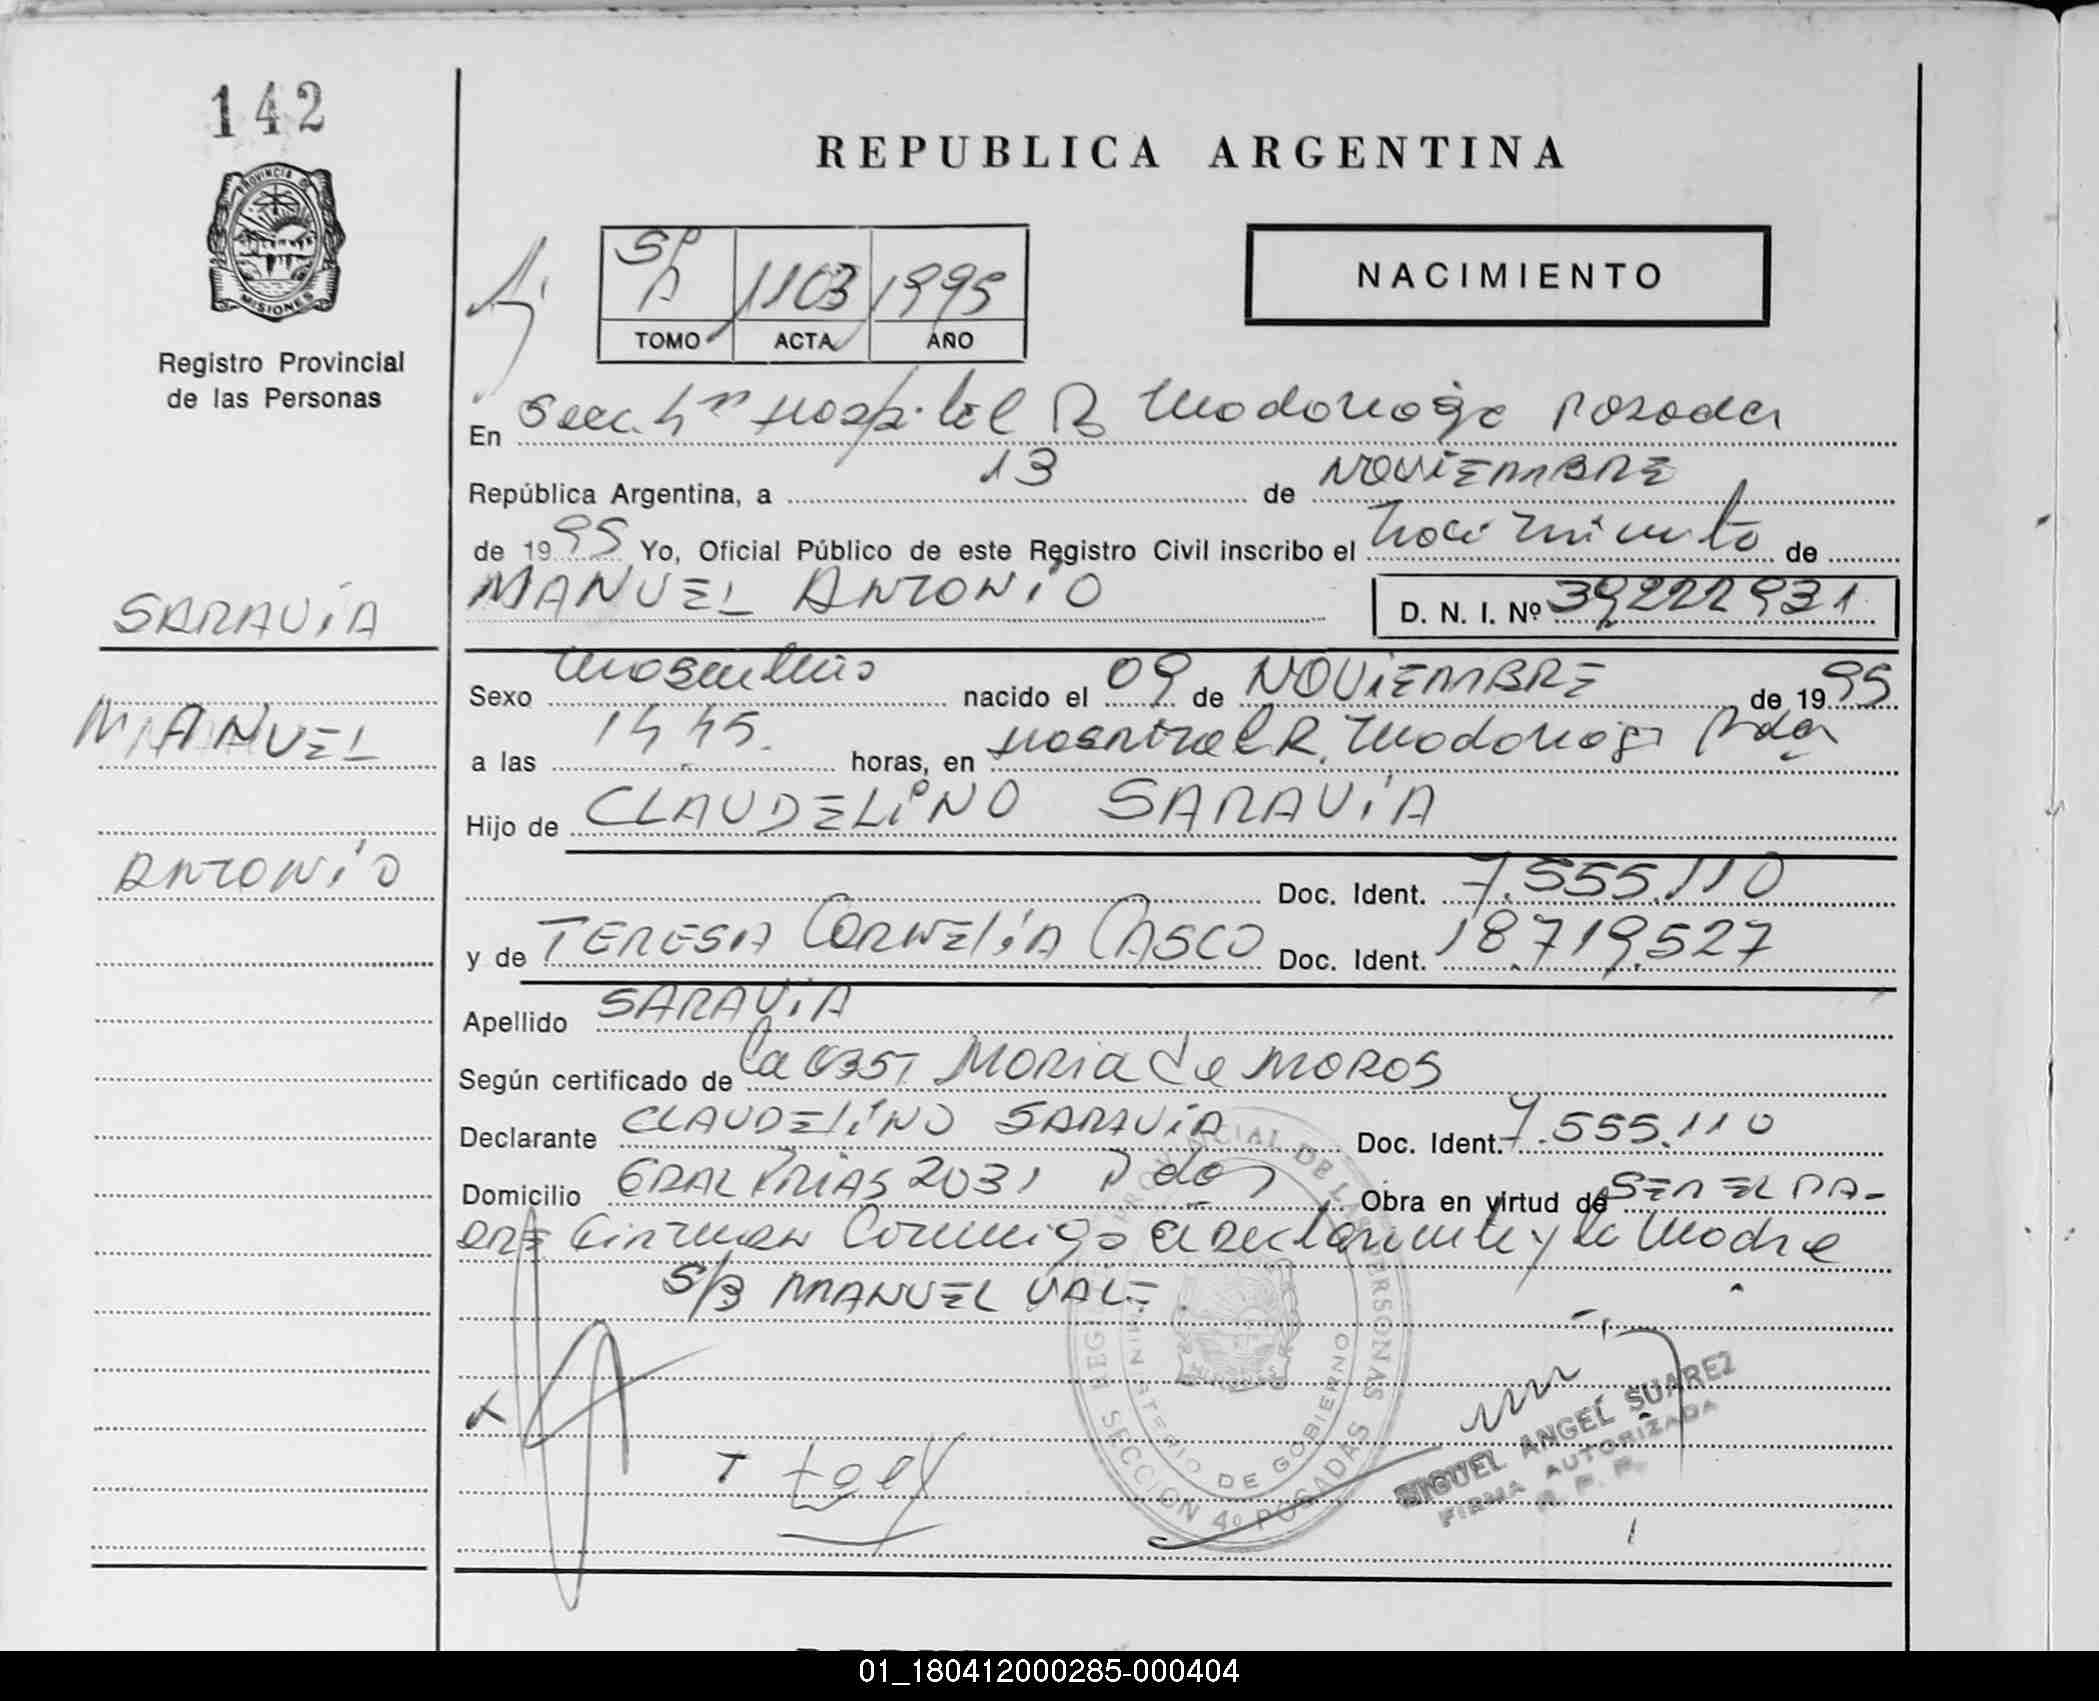 142
PROVINCIA DE
MISIONES
Registro Provincial
de las Personas
REPUBLICA ARGENTINA
1103 1995
TOMO ACTA AÑO
NACIMIENTO
En Secc. 4ta Hospital R Madariaga Posadas
República Argentina, a 13 de NOVIEMBRE
de 1995 Yo, Oficial Público de este Registro Civil inscribo el Nacimiento de
SARAVIA
MANUEL ANTONIO D. N. I. Nº 39222931
Sexo Masculino nacido el 09 de NOVIEMBRE de 1995
MANUEL
a las 14 45. horas, en HOSPITAL R. Madariaga Pdas
Hijo de CLAUDELINO SARAVIA
ANTONIO
Doc. Ident. 7.555.110
y de TERESA CORNELIA CASCO Doc. Ident. 18.719.527
Apellido SARAVIA
Según certificado de la OBST MARIA de MOROS
Declarante CLAUDELINO SARAVIA Doc. Ident. 7.555.110
Domicilio GRAL FRIAS 2031 Pdas Obra en virtud de SER EL PA-
DRE Firman Conmigo el Declarante y la Madre
S/B MANUEL VALE.
REGISTRO PROVINCIAL DE LAS PERSONAS
MINISTERIO DE GOBIERNO
SECCION 4º POSADAS
MIGUEL ANGEL SUAREZ
FIRMA AUTORIZADA
R. P. P.
01_180412000285-000404